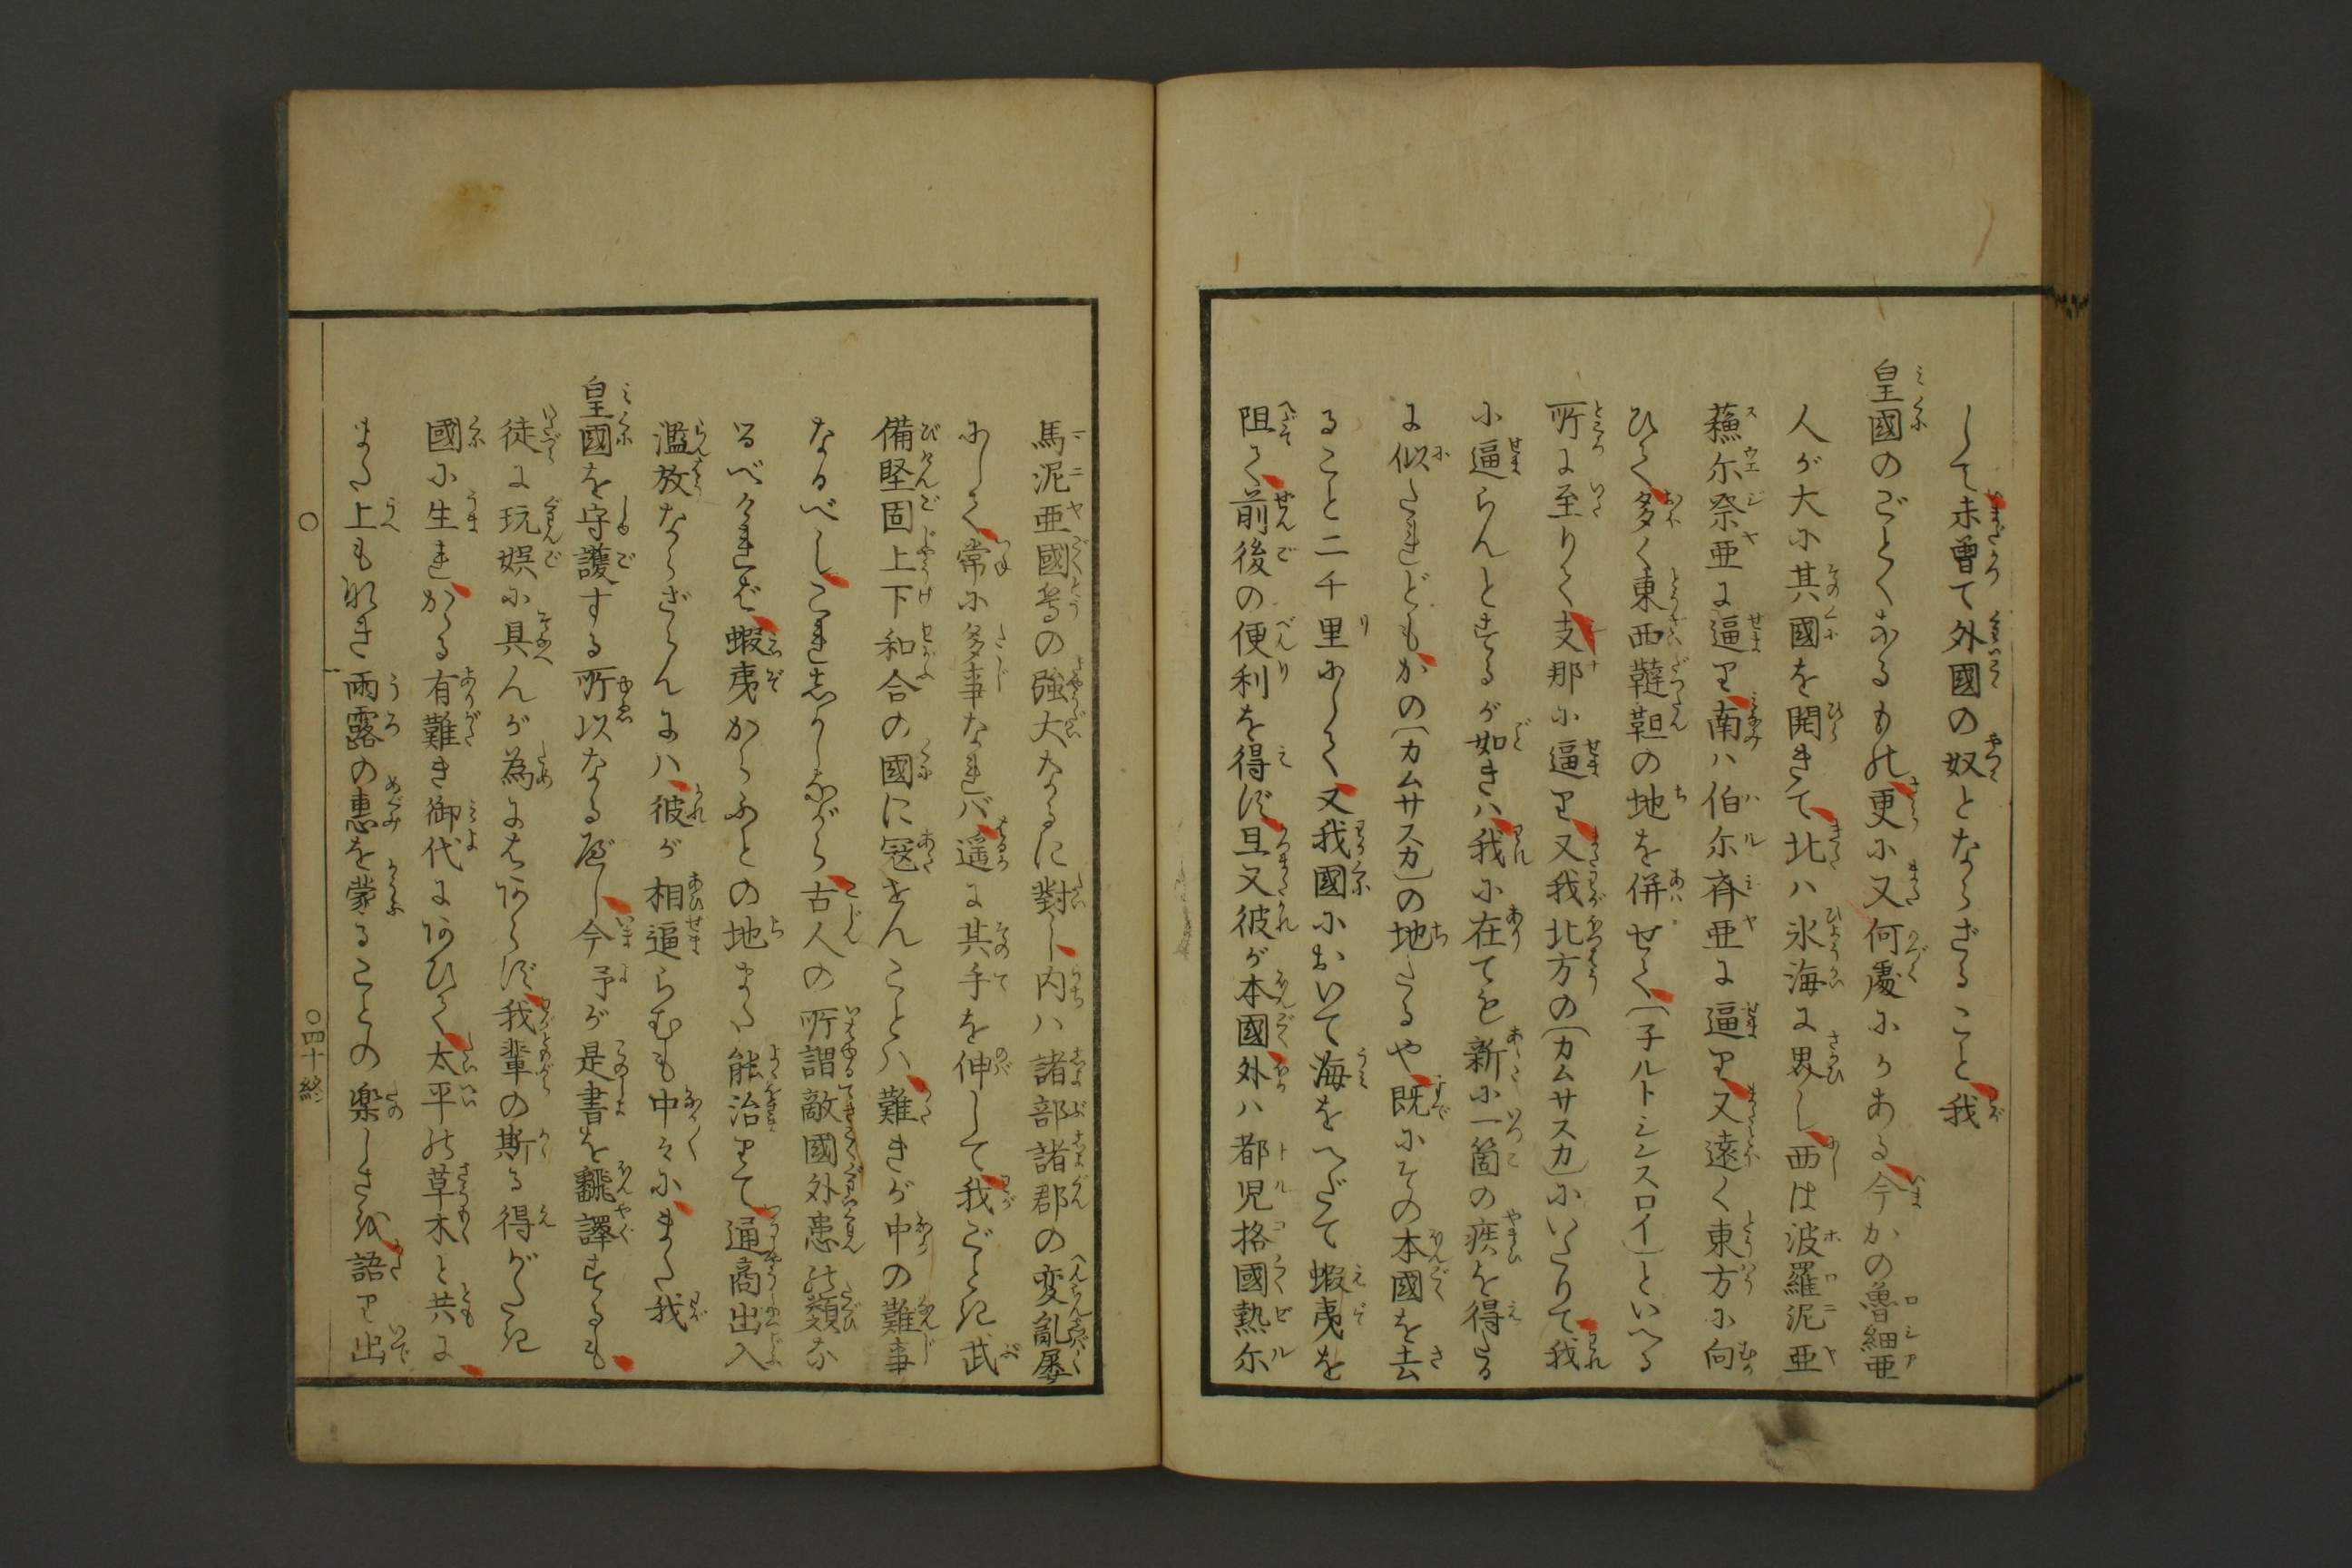 して未曽て外國の奴とならざること我
皇國のごとくなるもの更に又何處にかある今かの魯細亜
人が大に其國を開きて北ハ氷海に界し西は波羅泥亜
蘓尓祭亜に逼り南ハ伯尓斉亜に逼り又遠く東方に向
ひて多く東西韃靼の地を併せて〔子ルトシンスロイ〕といへる
所に至りて支那に逼り又我北方の〔カムサスカ〕にいたりて我
に逼らんとするが如きハ我に在ても新に一箇の疾を得たる
に似たれどもかの〔カムサスカ〕の地たるや既にその本國を去
ること二千里にして又我國において海をへだて蝦夷を
阻て前後の便利を得ず且又彼が本國外ハ都児格國熱尓
馬泥亜國等の強大なるに對し内ハ諸部諸郡の変亂屡
にして常に多事なれバ遥に其手を伸して我ごとき武
備堅固上下和合の國に寇せんことハ難きが中の難事
なるべしこれしかしながら古人の所謂敵國外患の類な
るべければ蝦夷からふとの地また能治りて通商出入
濫放ならざらんにハ彼が相逼らむも中々にまた我
皇國を守護する所以なるべし今予が是書を飜譯するも
徒に玩娯に具んが為にはあらず我輩の斯る得がたき
國に生れかゝる有難き御代にあひて太平の草木と共に
また上もなき雨露の惠を蒙ることの楽しさを語り出
〇
〇四十終